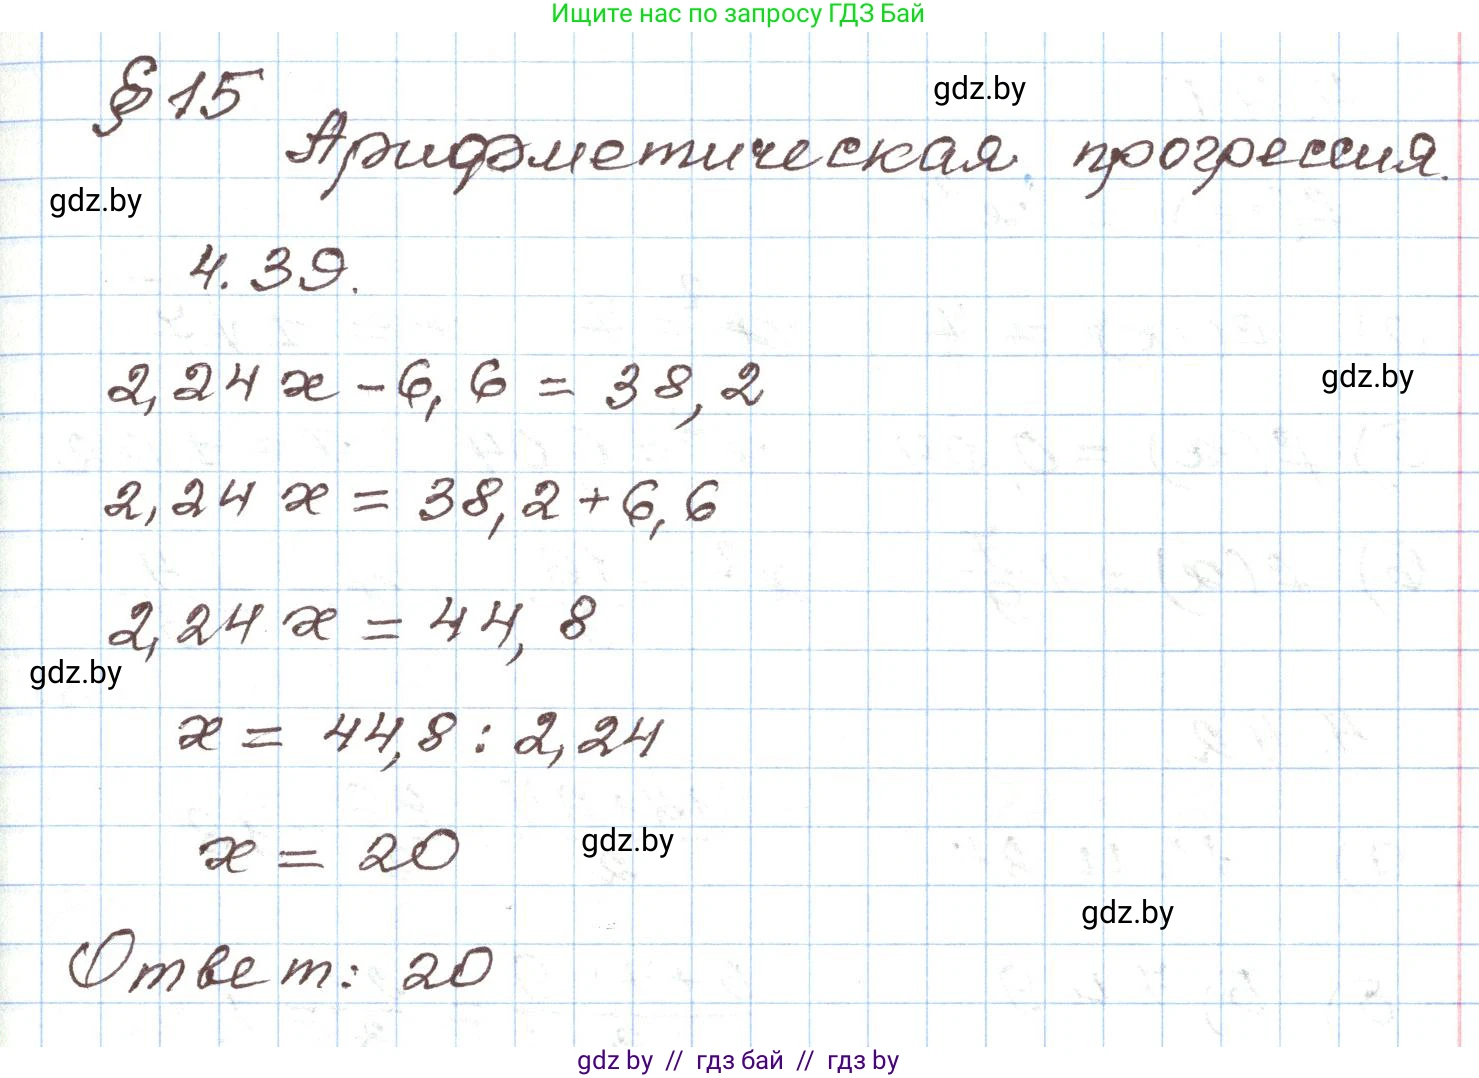 Ищите нас по запросу ГДЗ Бай
§ 15
gdz.by
Арифметическая прогрессия.
gdz.by
4.39.
2,24 x - 6,6 = 38,2
gdz.by
2,24 x = 38,2 + 6,6
2,24 x = 44,8
gdz.by
x = 44,8 : 2,24
x = 20
gdz.by
gdz.by
Ответ: 20
gdz by // гдз бай // гдз by